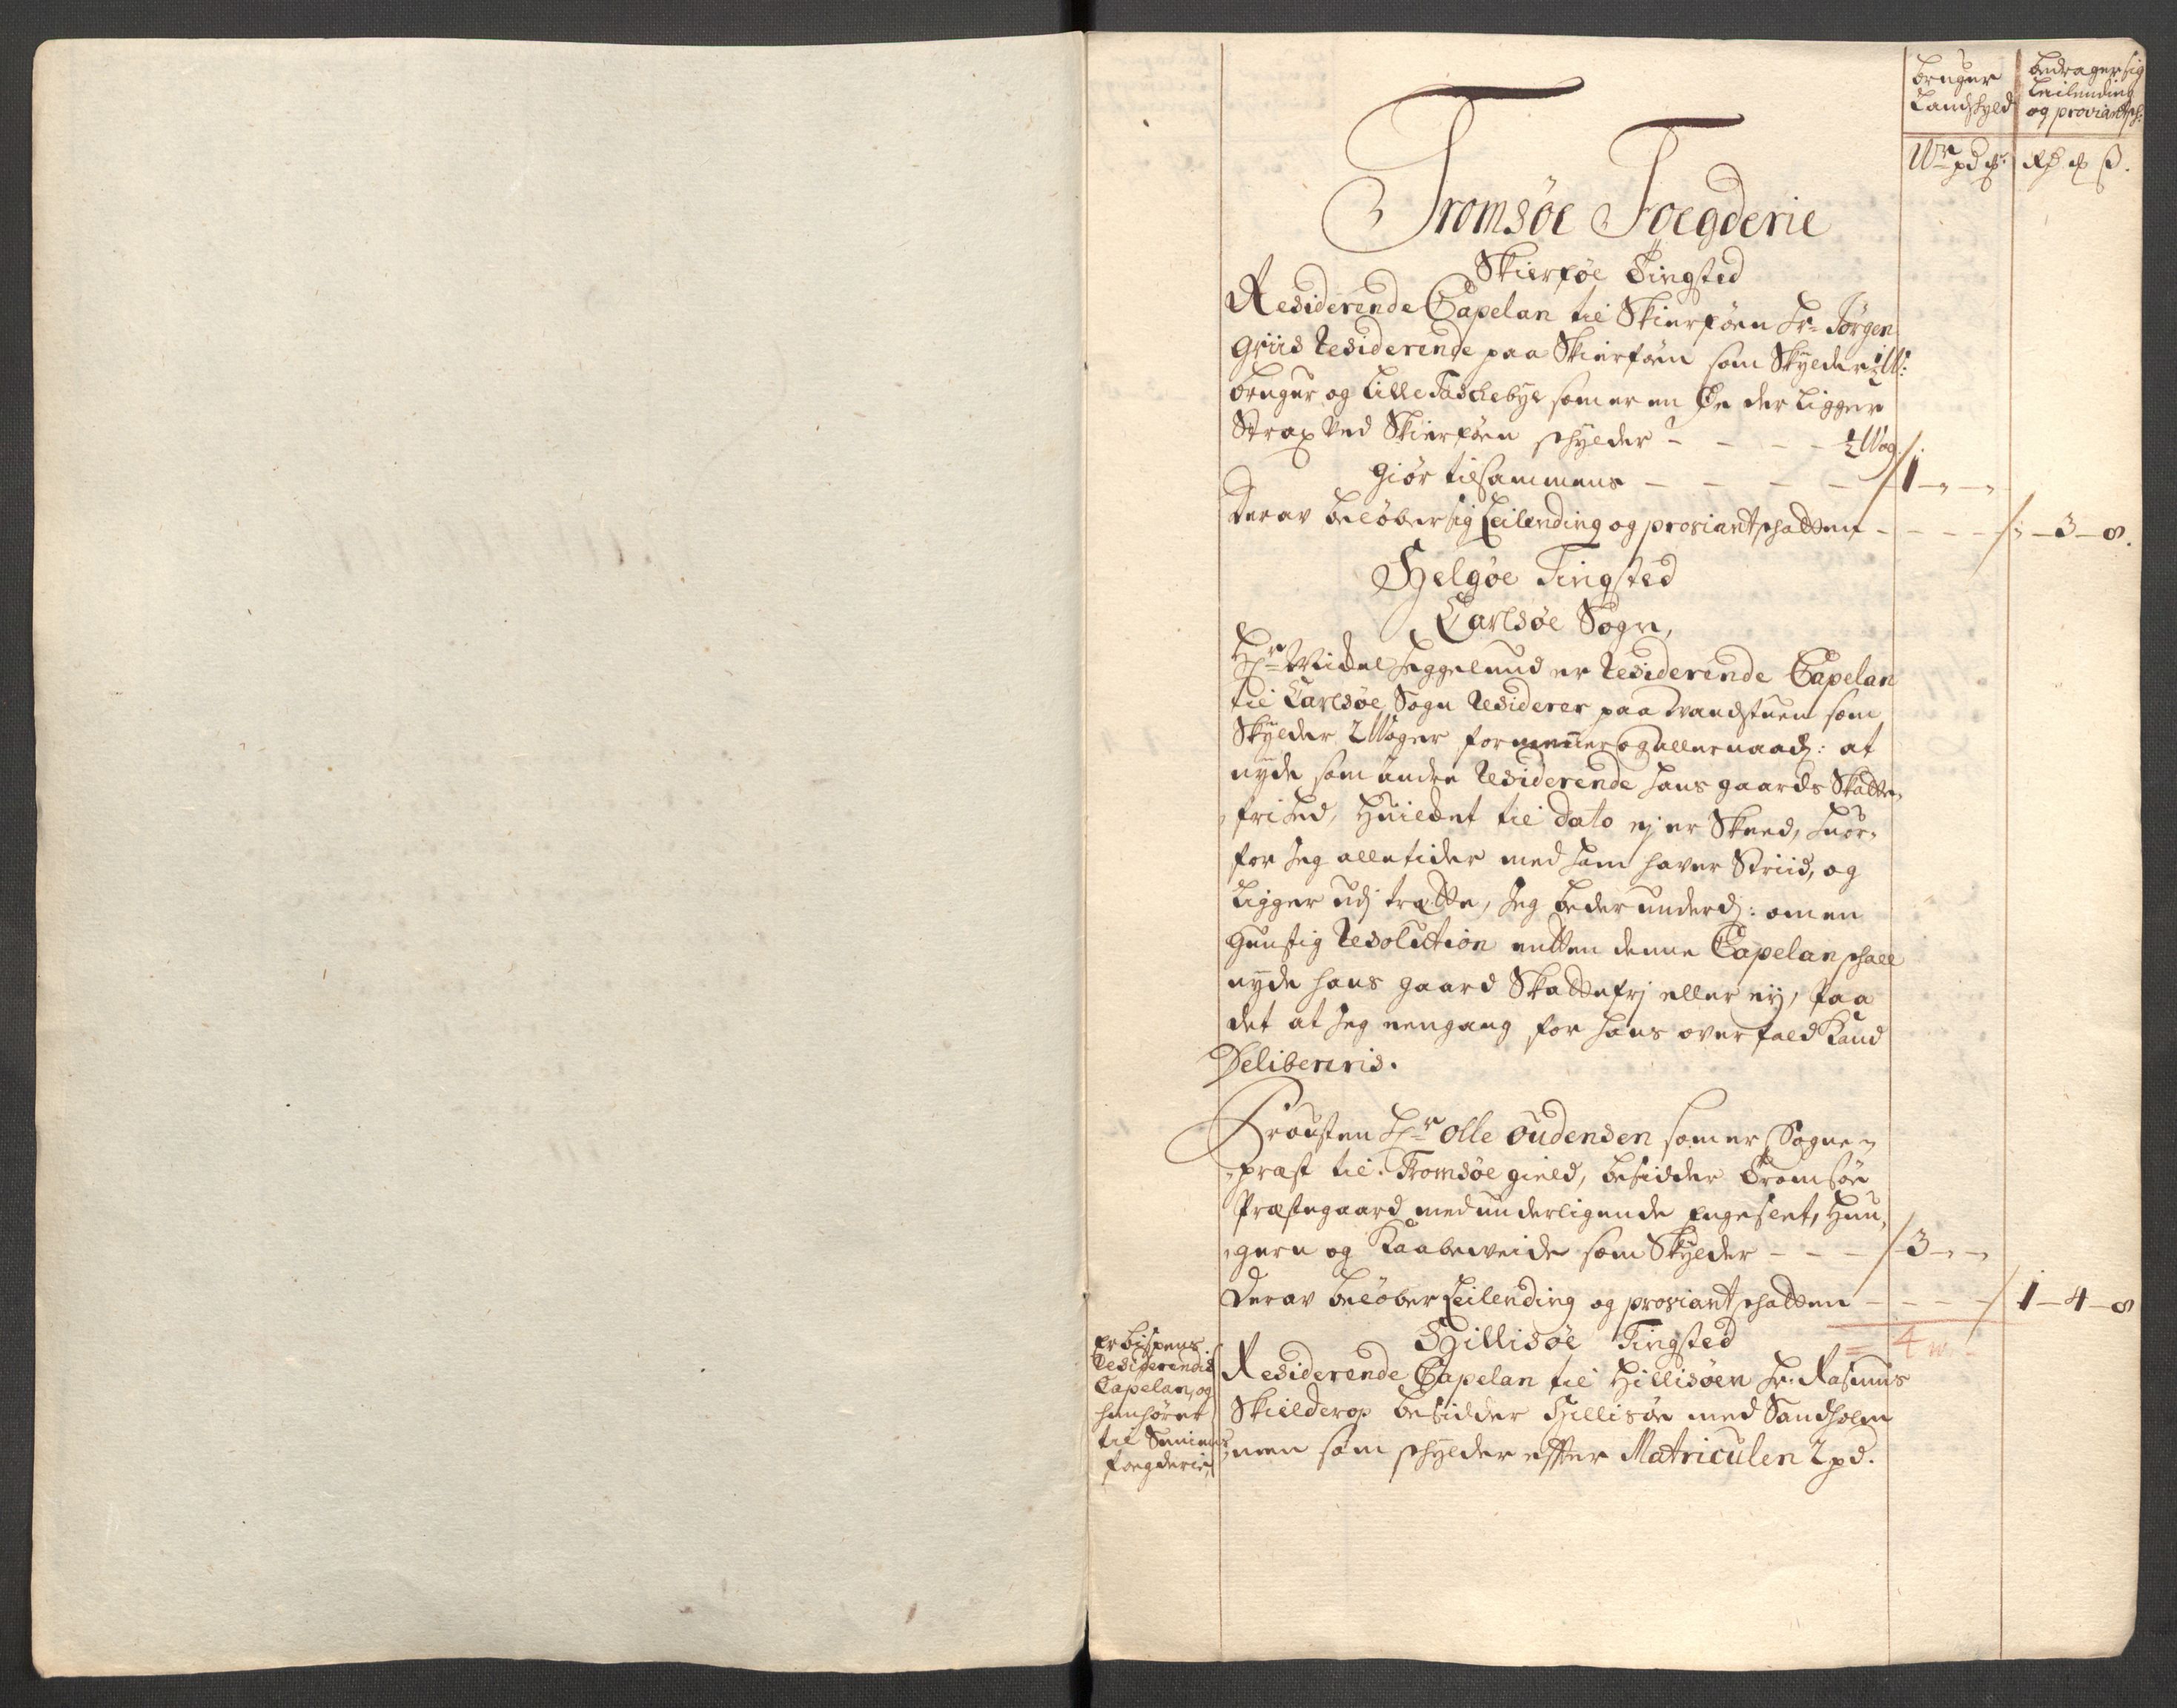 bruger
Landschyld
bedrager sig
Leilending
og proviantsch:
W pd
Rd ß.
Tromsøe Foegderie
Skierføe Tingsted
Residerende Capelan til Skierføen Hr. Jørgen
Griis Residerende paa Skierføen som Skylder ½ W:
bruger og Lille Taschebye som er en Øe der Ligger
Strax ved Skierføen schylder - - - - ½ Wog.
giør tilsammens - - - - - 1 - „ - „
derav beløber sig Leilending og proviantschatten - - - - „ - 3 - 8.
Helgøe Tingsted
Carlsøe Sogn,
Hr. Heggelund er Residerende Capelan
til Carlsøe Sogn Residerer paa Vandstuen som
Skylder 2 Woger formeener og allernaad: at
nyde som andre Residerende hans gaards Skatte„
frihed, Huilchet til dato ej er Skeed, huor„
for Jeg alletider med ham haver Striid, og
Ligger udj trætte, Jeg beder underd: om en
gunstig Resolution entten denne Capelan schall
nyde hans gaard Skattefrj eller ey, paa
det at Jeg eengang for hans overfald kand
Delibereris.
Prousten Hr. Olle Oudensen som er Sogne„
„præst til Tromsøe gield, besidder Tromsøe
Præstegaard med underligende Engeslet, Hun„
„gern og Kaabeveide som Skylder - - - 3 - „ - „
derav beløber Leilending og proviantschatten - - - - 1 - 4 - 8
= 4 w
Hillisøe Tingsted
Er bispens
Residerendis
Capelan, og
henhører
til Seniens
foegderie,
Residerende Capelan til Hillisøen Hr. Rasmus
Skielderop besidder Hillisøe med Sandholm
„men som schylder effter Matriculen 2 pd.